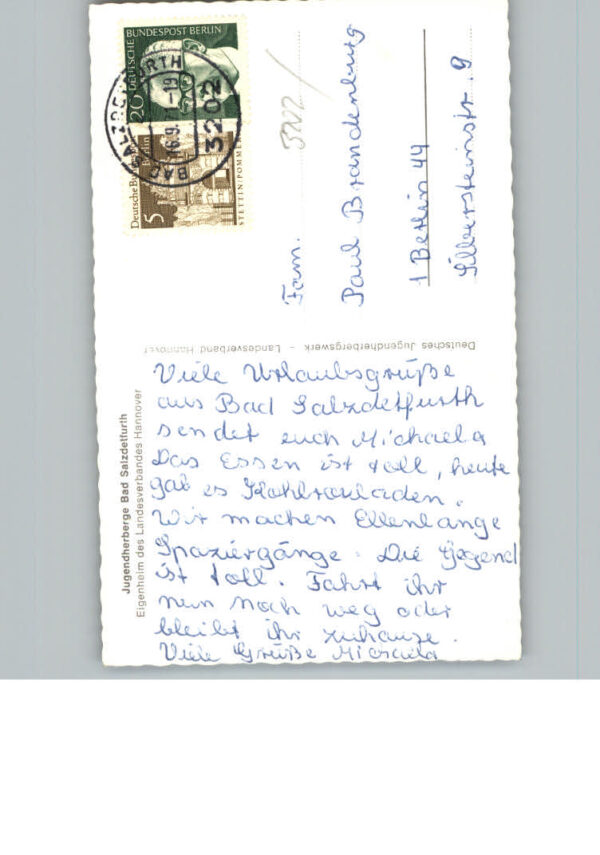 Jugendherberge Bad Salzdetfurth
Eigenheim des Landesverbandes Hannover
Viele Urlaubsgrüße
aus Bad Salzdetfurth
sendet euch Michaela
Das Essen ist toll, heute
gab es Kohlrouladen.
Wir machen Ellenlange
Spaziergänge. Die Gegend
ist toll. Fahrt ihr
nun noch weg oder
bleibt ihr zuhause.
Viele Grüße Michaela
Deutsches Jugendherbergswerk - Landesverband Hannover
DEUTSCHE BUNDESPOST BERLIN
20
Berlin
5
STETTIN/POMMERN
BAD SALZDETFURTH
16.9.71-19
3202
3202
Fam.
Paul Brandenburg
1 Berlin 44
Silbersteinstr. 9